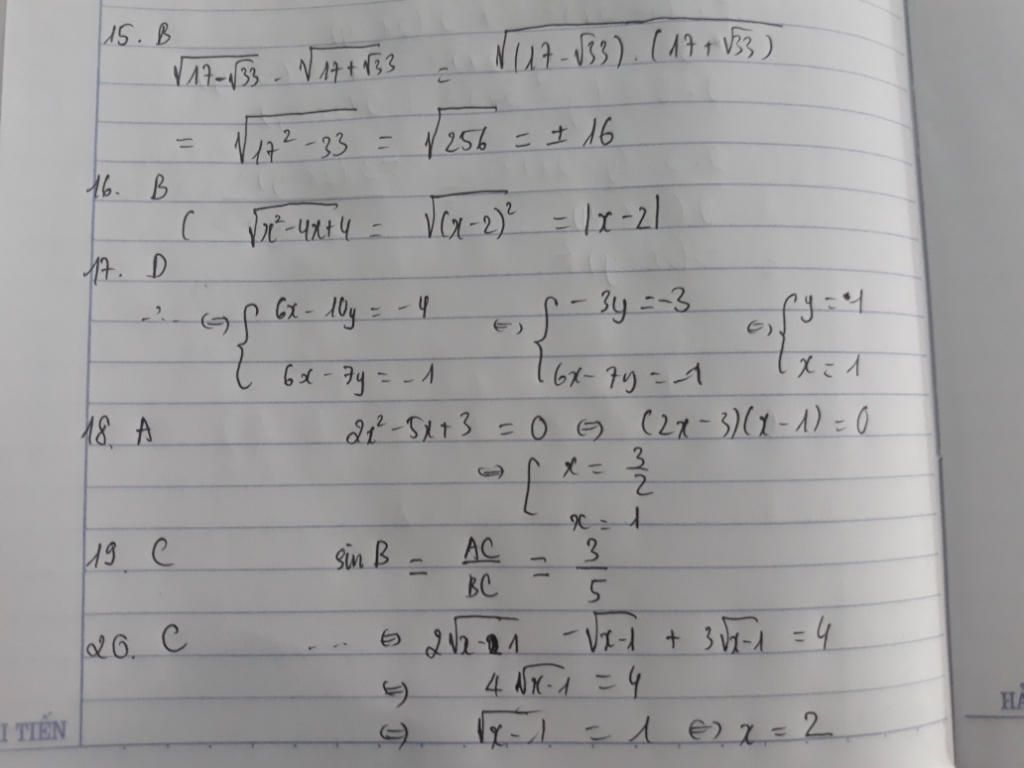 15. B
√(17-√33) . √(17+√33) = √((17-√33).(17+√33))
= √(17² - 33) = √256 = ± 16
16. B
( √(x²-4x+4) = √((x-2)²) = |x-2|
17. D
... ⇔ { 6x - 10y = -4 ⇔ { -3y = -3 ⇔ { y = 1
6x - 7y = -1 6x - 7y = -1 x = 1
18. A 2x² - 5x + 3 = 0 ⇔ (2x-3)(x-1) = 0
⇔ [ x = 3/2
x = 1
19. C sin B = AC/BC = 3/5
20. C ... ⇔ 2√(x-1) - √(x-1) + 3√(x-1) = 4
⇔ 4√(x-1) = 4
⇔ √(x-1) = 1 ⇔ x = 2
I TIẾN
HẢ